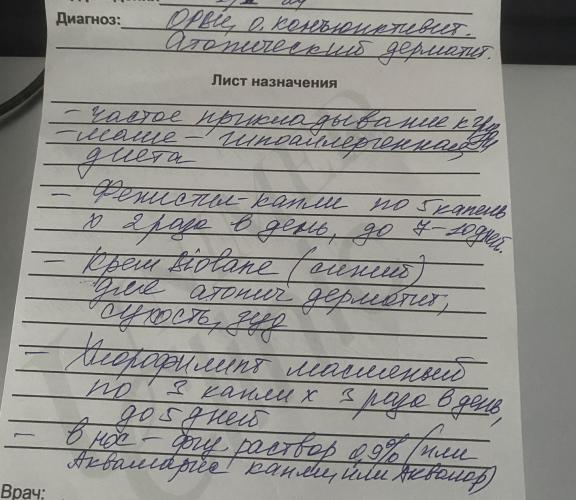 Диагноз: ОРВИ, о. конъюнктивит.
Атопический дерматит.
Лист назначения
- частое прикладывание к груди
- маме - гипоаллергенная
диета
- Фенистил-капли по 5 капель
х 2 раза в день, до 7-10 дней.
- Крем Biolane (синий)
для атопич дерматит,
сухость, зуд
- Хлорофилипт масленый
по 3 капли х 3 раза в день,
до 5 дней
- в нос - физ раствор 0,9% (или
Аквамарис капли, или Аквалор)
Врач: